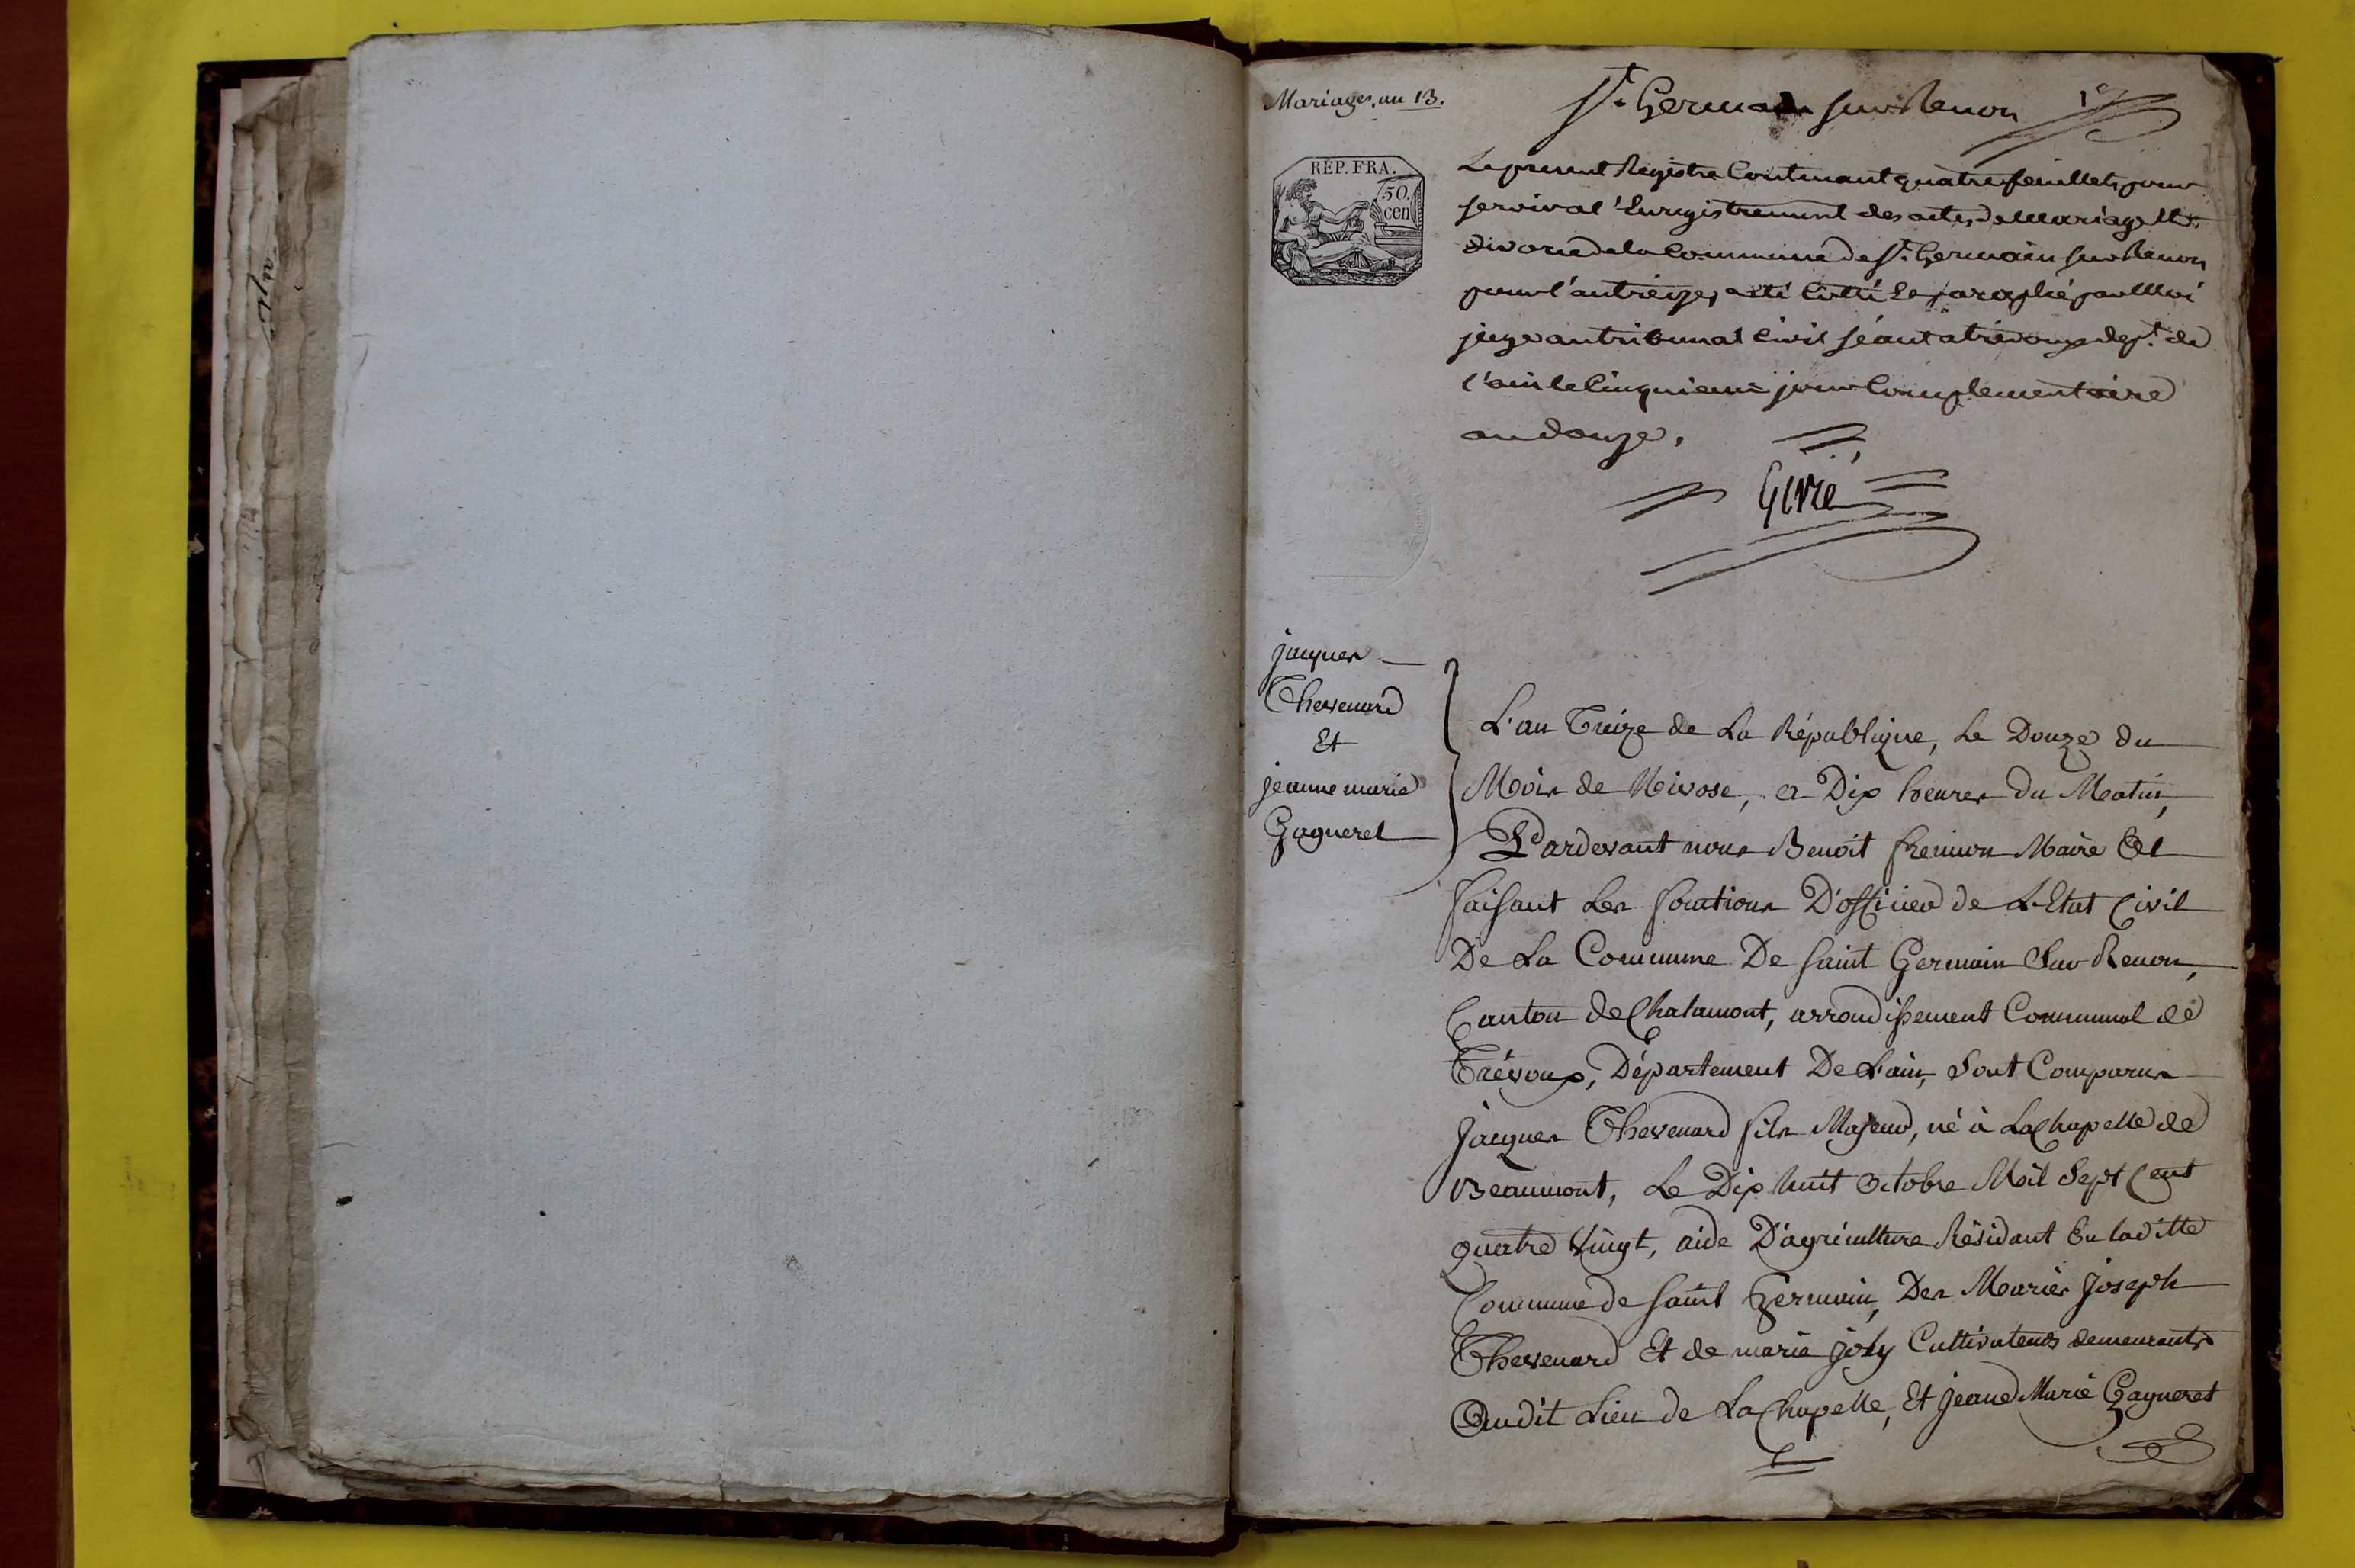 Mariages, an 13.
St. Germain sur Renon 1er
RÉP. FRA.
50.
cen
Le present Registre Contenant quatre feuillets pour
servir a l'Enregistrement des actes de Mariage Et
divorce de la Commune de St. Germain sur Renon
pour l'an treize, a été Cotté Et paraphé par Moi
juge au tribunal Civil séant a trevoux dept. de
l'ain le Cinquieme jour Complementaire
an douze,
jacques
Thevenard
Et
jeanne marie
Gagneret
L'an Treize de La République, Le Douze du
Mois de Nivose, a Dix heures Du Matin,
Pardevant nous Benoit Mairé Et
faisant Les fonctions D'officier de L'Etat Civil
De La Commune De Saint Germain Sur Renon,
Canton de Chalamont, arrondissement Communal de
Trévoux, Département De L'ain, Sont Comparus
Jacques Thevenard fils Majeur, né à La Chapelle de
Beaumont, Le Dix huit Octobre Mil Sept Cent
quatre Vingt, aide D'agriculture Résidant En laditte
Commune de Saint Germain, Des Mariés Joseph
Thevenard Et de marie joly Cultivateurs demeurants
Audit Lieu de La Chapelle, Et jeane Marie Gagneret